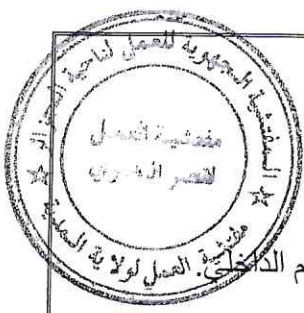 المفتشية الجهوية للعمل لناحية الجزائر
مفتشية العمل
لقصر البخاري
مفتشية العمل لولاية المدية
م الداخلي.